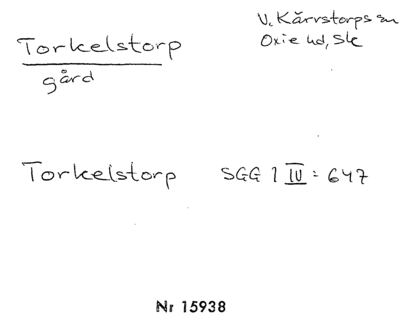 Torkelstorp
gård
V. Kärrstorps sn
Oxie hd, Sk
Torkelstorp SGG 1 IV: 647
Nr 15938